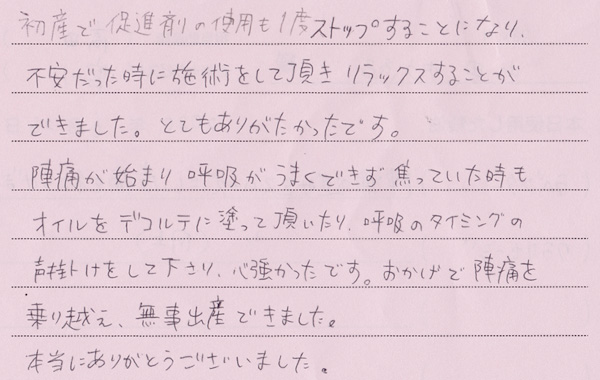 初産で促進剤の使用も1度ストップすることになり、
不安だった時に施術をして頂きリラックスすることが
できました。とてもありがたかったです。
陣痛が始まり呼吸がうまくできず焦っていた時も
オイルをデコルテに塗って頂いたり、呼吸のタイミングの
声掛けをして下さり、心強かったです。おかげで陣痛を
乗り越え、無事出産できました。
本当にありがとうございました。